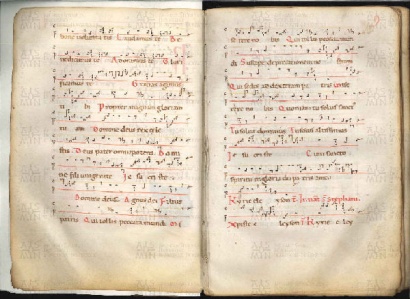 bone uoluntatis Laudamus te Be
nedicimus te Adoramus te Glori
ficamus te Gratias agimus
ti bi Propter magnam gloriam
tu am Domine deus rex cele
stis Deus pater omnipotens Domi
ne fili unigenite Iesu christe
Domine deus Agnus dei Filius
patris Qui tollis peccata mundi mi
serere nobis Qui tollis peccata mun
di Suscipe deprecationem nostram
Qui sedes ad dexteram patris mise
rere nobis Quoniam tu solus sanctus
Tu solus dominus Tu solus altissimus
Iesu christe Cum sancto
spiritu in gloria dei patris amen
Kyrie eleyson
Xpiste eleyson Kyrie eley